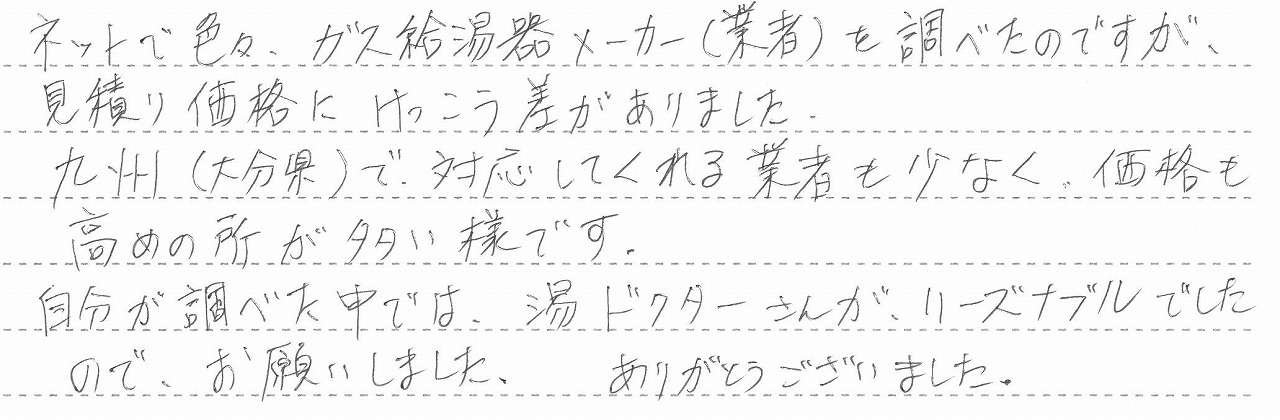 ネットで色々、ガス給湯器メーカー(業者)を調べたのですが、
見積り価格にけっこう差がありました.
九州(大分県)で対応してくれる業者も少なく、価格も
高めの所が多い様です.
自分が調べた中では、湯ドクターさんが、リーズナブルでした
ので、お願いしました、 ありがとうございました。